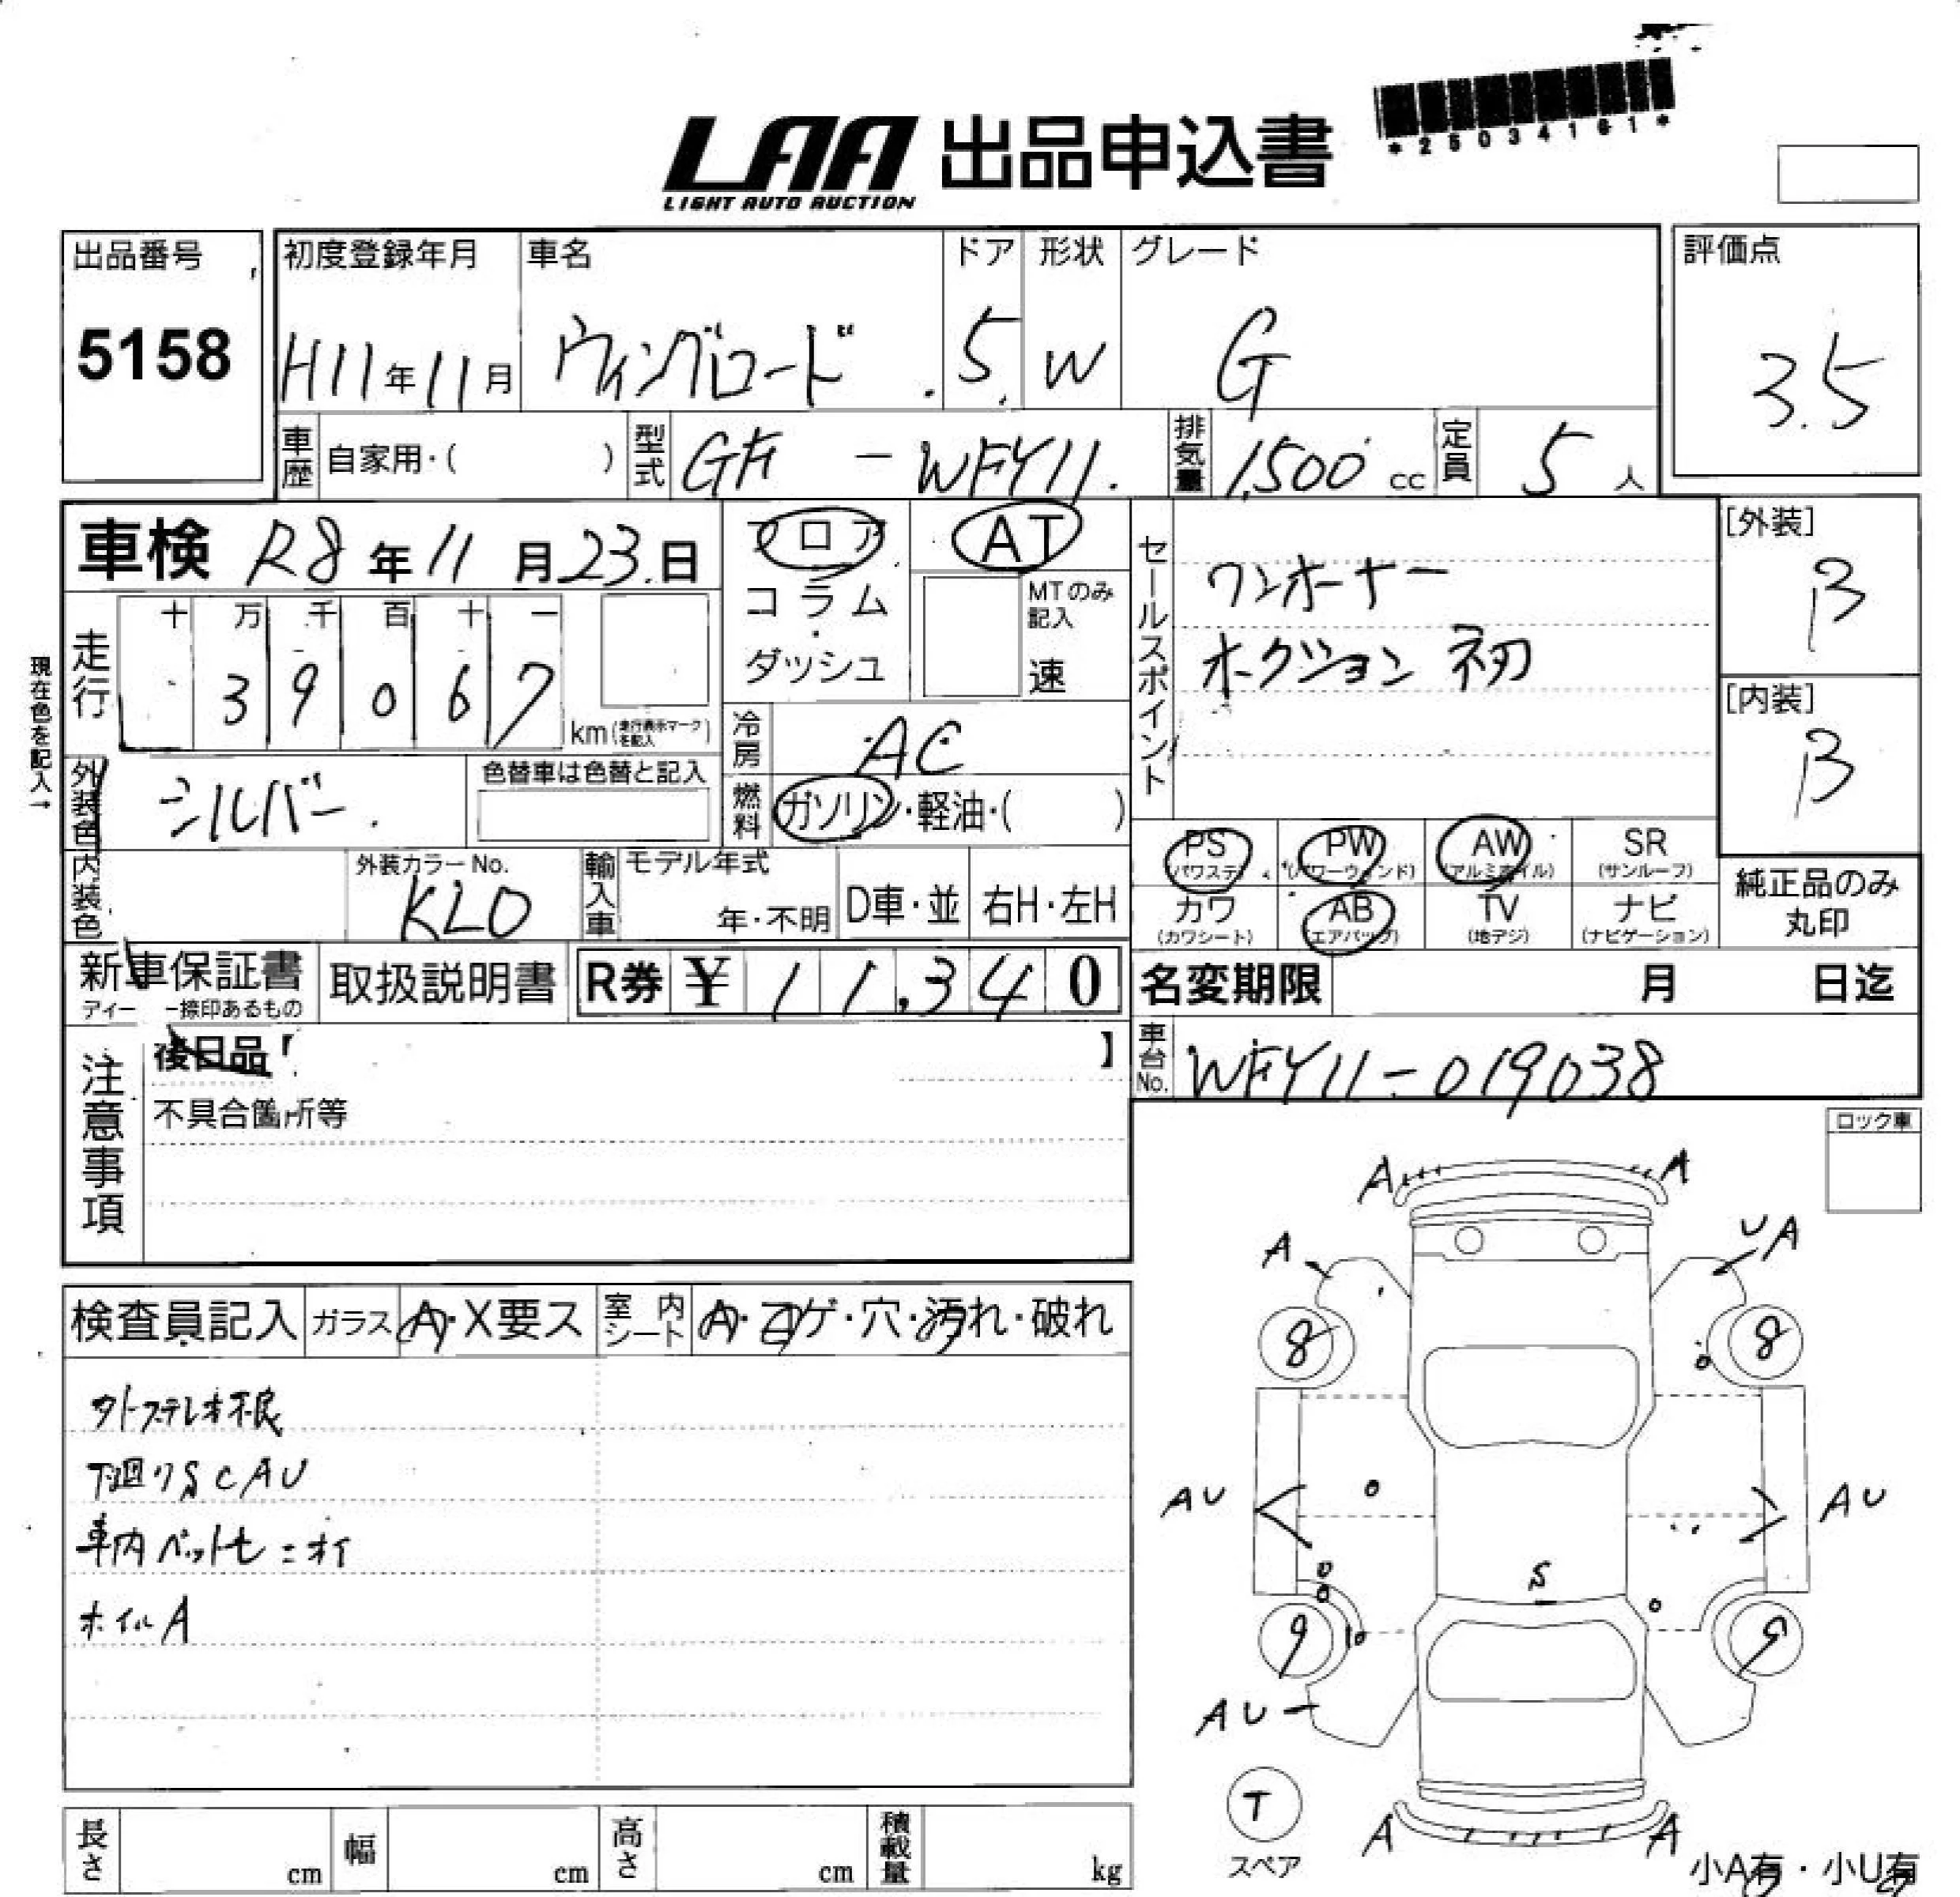 LAA 出品申込書
LIGHT AUTO AUCTION
*25034161*
出品番号
5158
初度登録年月
H11年11月
車名
ウィングロード
ドア
5
形状
W
グレード
G
評価点
3.5
車歴 自家用・( )
型式 GF - WFY11
排気量 1,500 cc
定員 5 人
車検 R8年11月23日
フロア
コラム
・
ダッシュ
AT
MTのみ
記入
速
セールスポイント
ワンオーナー
オークション 初
[外装]
B
[内装]
B
現在色を記入→
走行
十 万 千 百 十 一
3 9 0 6 7
km(走行表示マークを記入)
冷房 AC
燃料 ガソリン・軽油・( )
外装色 シルバー
色替車は色替と記入
内装色
外装カラーNo.
KL0
輸入車
モデル年式
年・不明
D車・並
右H・左H
PS (パワステ)
PW (パワーウィンド)
AW (アルミホイル)
SR (サンルーフ)
カワ (カワシート)
AB (エアバック)
TV (地デジ)
ナビ (ナビゲーション)
純正品のみ
丸印
新車保証書
ディー 一捺印あるもの
取扱説明書
R券 ¥ 11,340
名変期限 月 日迄
車台No. WFY11-019038
注意事項
後日品【 】
不具合箇所等
ロック車
検査員記入
ガラス A・X要ス
室内シート A・コゲ・穴・汚れ・破れ
下廻りSCAU
車内ペット毛ニオイ
ホイルA
A A
A UA
8 8
AU AU
S
9 9
AU
T
スペア
A A
小A有・小U有
長さ cm
幅 cm
高さ cm
積載量 kg